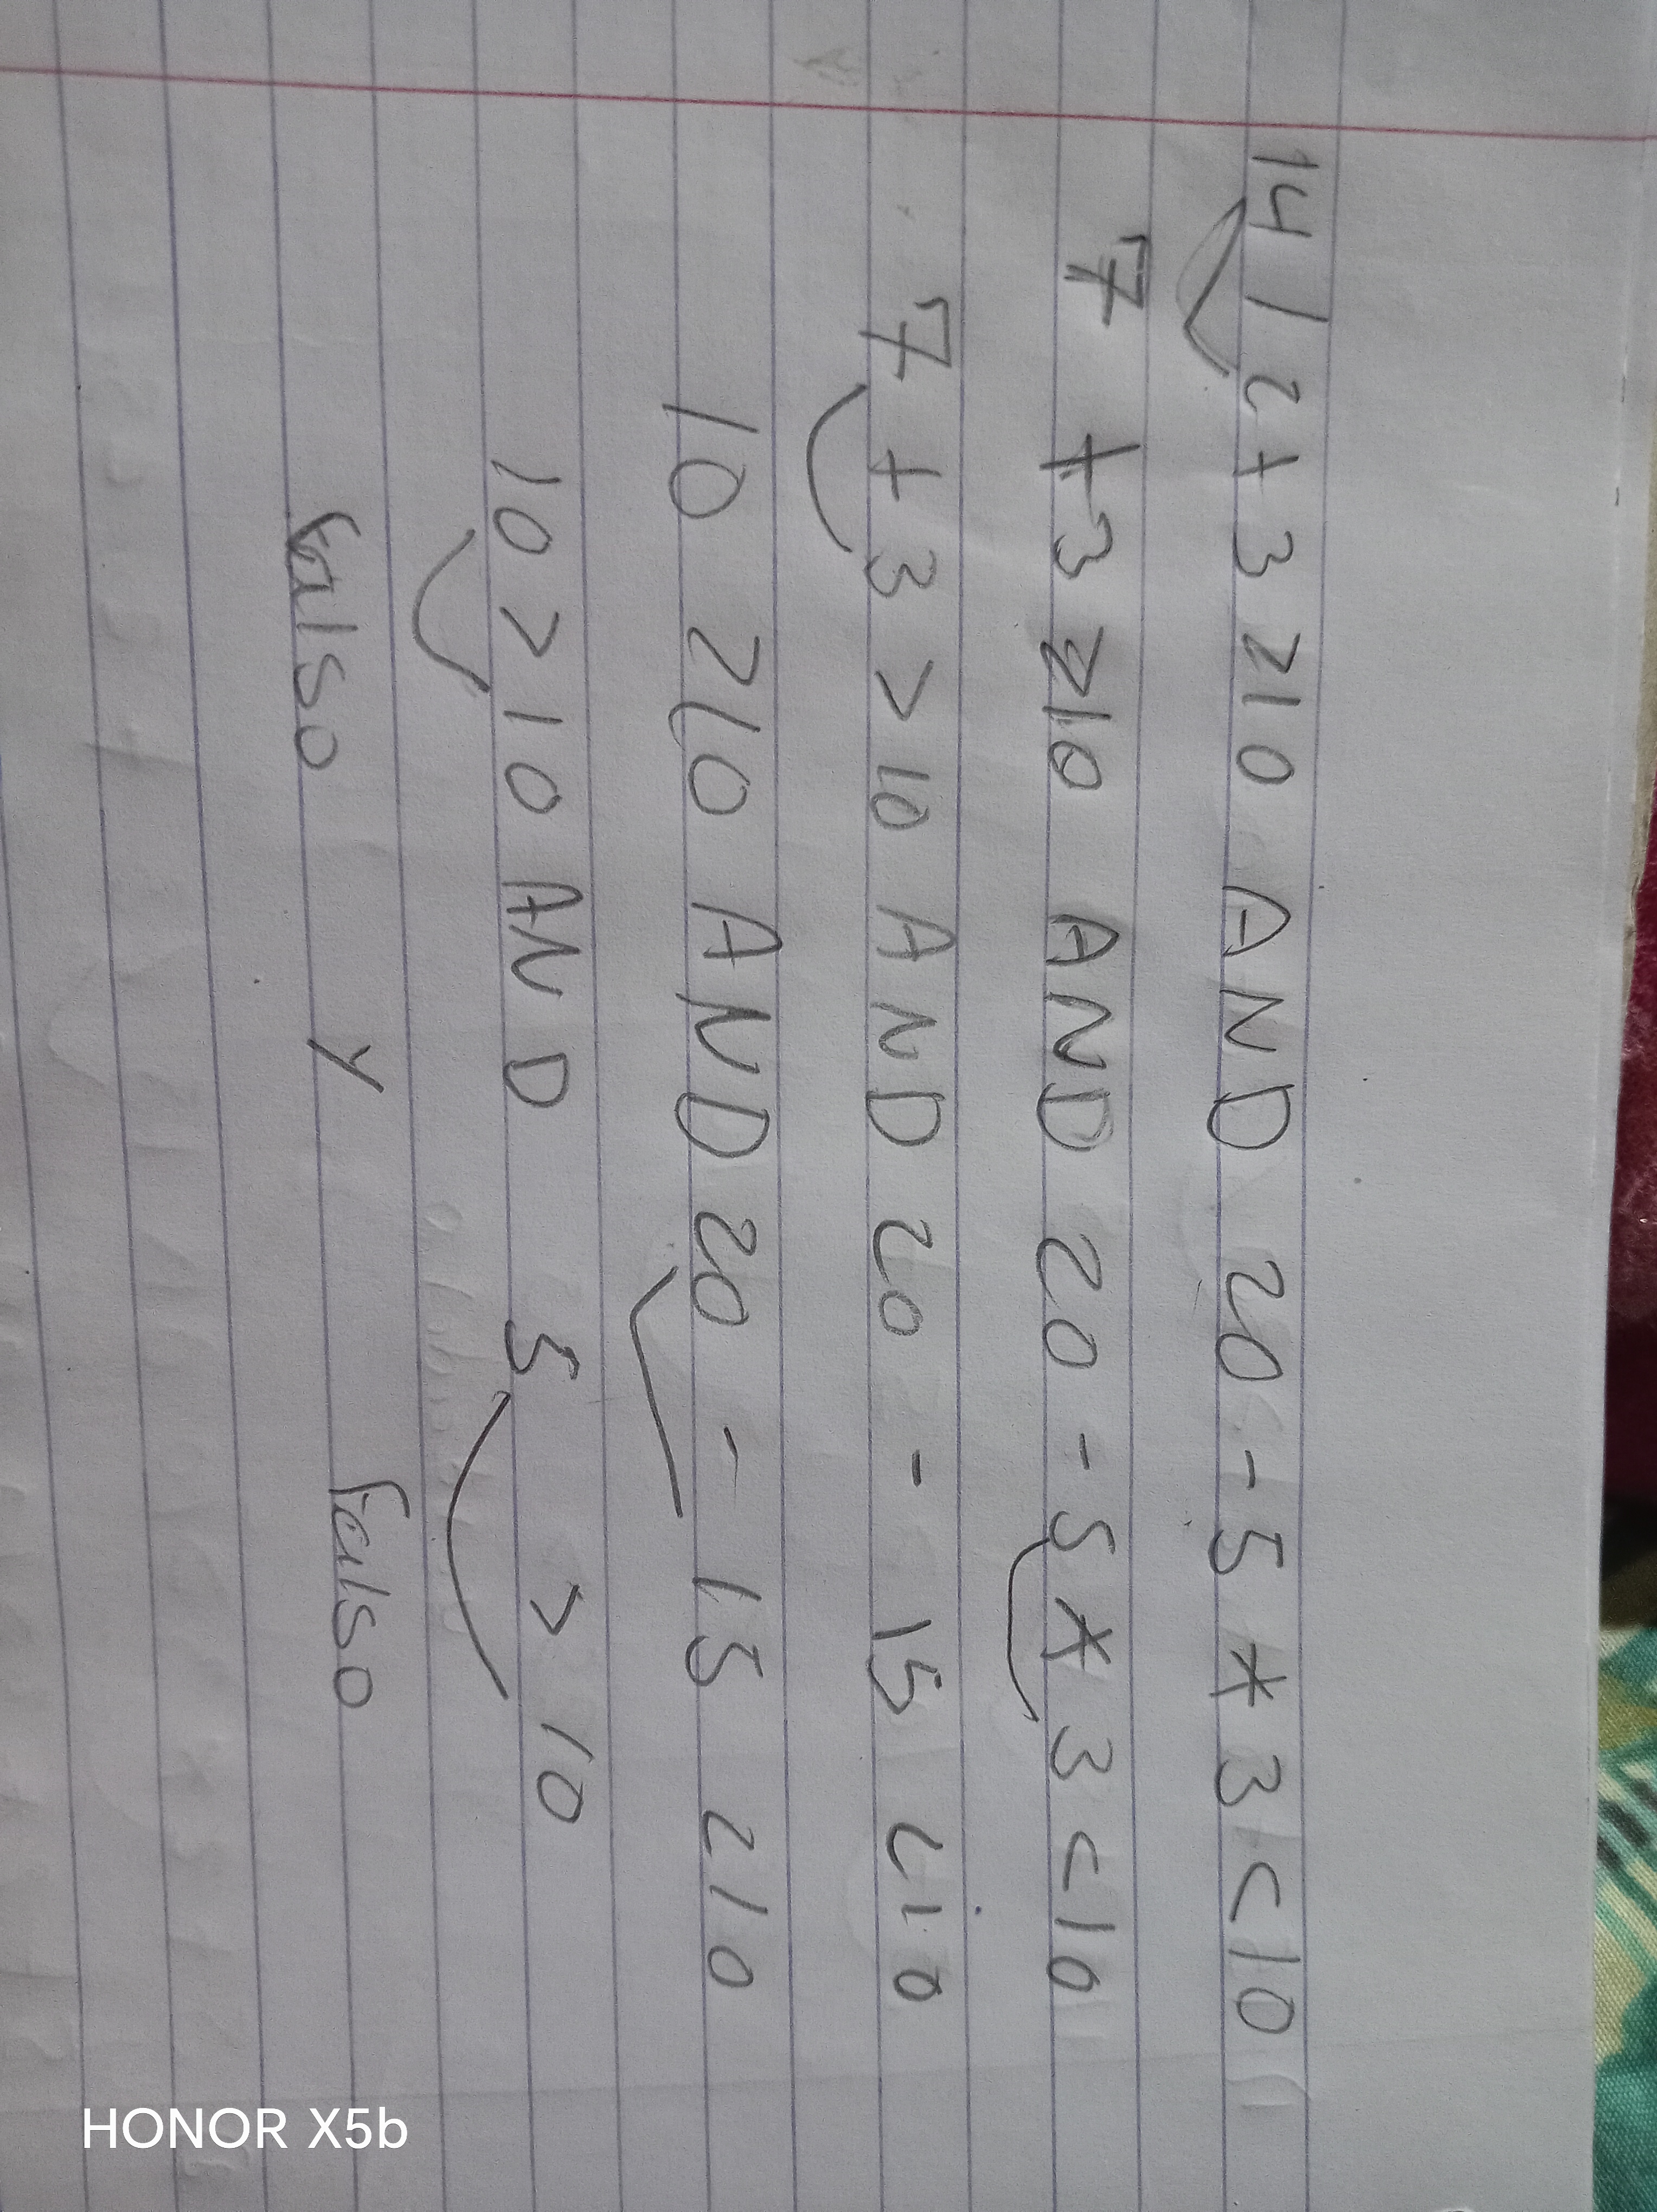 14 / 2 + 3 > 10 AND 20 - 5 * 3 < 10
7 + 3 > 10 AND 20 - 5 * 3 < 10
7 + 3 > 10 AND 20 - 15 < 10
10 > 10 AND 20 - 15 < 10
10 > 10 AND 5 > 10
Falso Y Falso
HONOR X5b